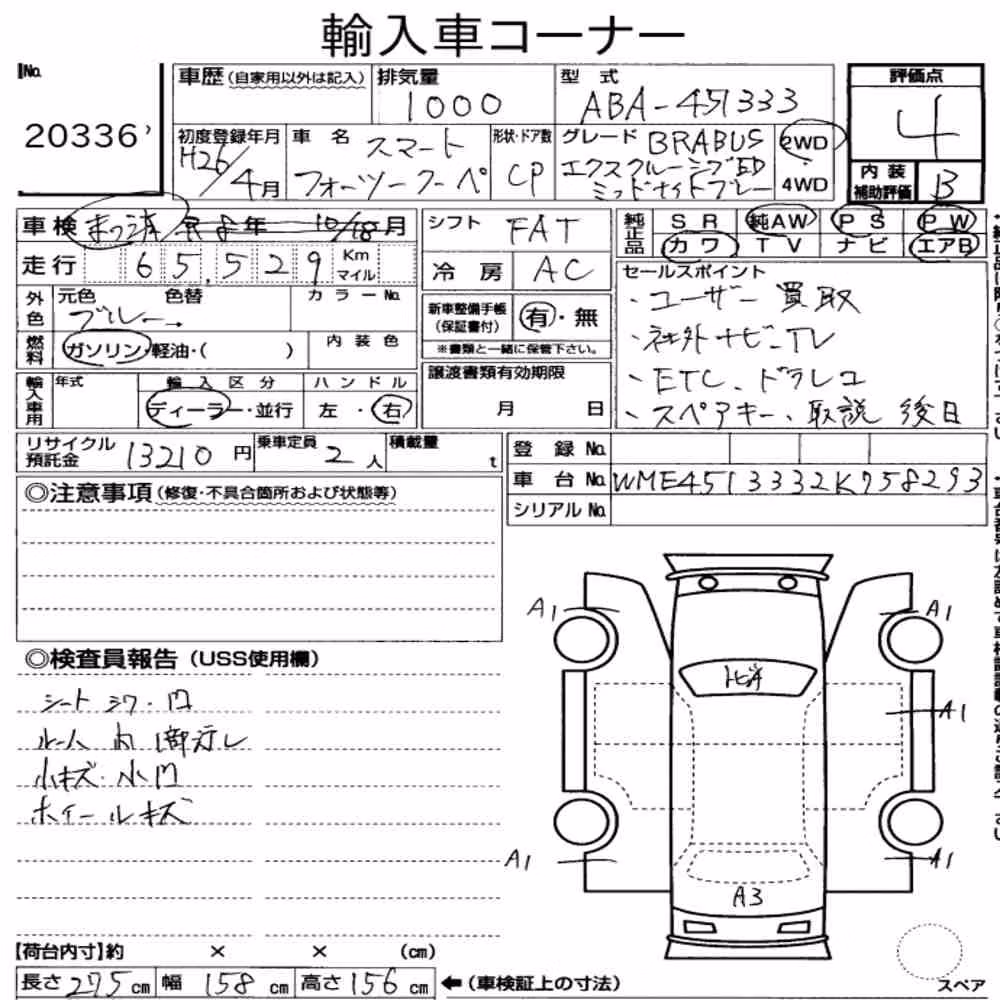 輸入車コーナー
No.
20336
車歴（自家用以外は記入）
排気量
1000
型式
ABA-451333
評価点
4
初度登録年月
H26/4月
車名
スマート
フォーツークーペ
形状・ドア数
CP
グレード BRABUS
エクスクルーシブED
ミッドナイトブルー
2WD
4WD
内装
補助評価
B
車検
年 10/18 月
シフト FAT
純正品
SR 純AW PS PW
カワ TV ナビ エアB
走行 65,529 Km マイル
冷房 AC
セールスポイント
・ユーザー買取
・社外ナビ-TV
・ETC、ドラレコ
・スペアキー、取説 後日
外色
元色 色替
ブルー→
カラーNo.
新車整備手帳
（保証書付）
有・無
※書類と一緒に保管下さい。
燃料
ガソリン・軽油・（ ）
内装色
輸入車用
年式
輸入区分
ディーラー・並行
ハンドル
左・右
譲渡書類有効期限
月 日
リサイクル
預託金
13210円
乗車定員
2人
積載量
t
登録No.
車台No. WME4513332K758293
シリアルNo.
◎注意事項（修復・不具合箇所および状態等）
◎検査員報告（USS使用欄）
シート シワ・凹
ルーム内 1部汚レ
小キズ・小凹
ホイールキズ
A1
A1
トビ渋
A1
A1
A1
A3
【荷台内寸】約 × × （cm）
長さ 275 cm 幅 158 cm 高さ 156 cm ←（車検証上の寸法）
スペア